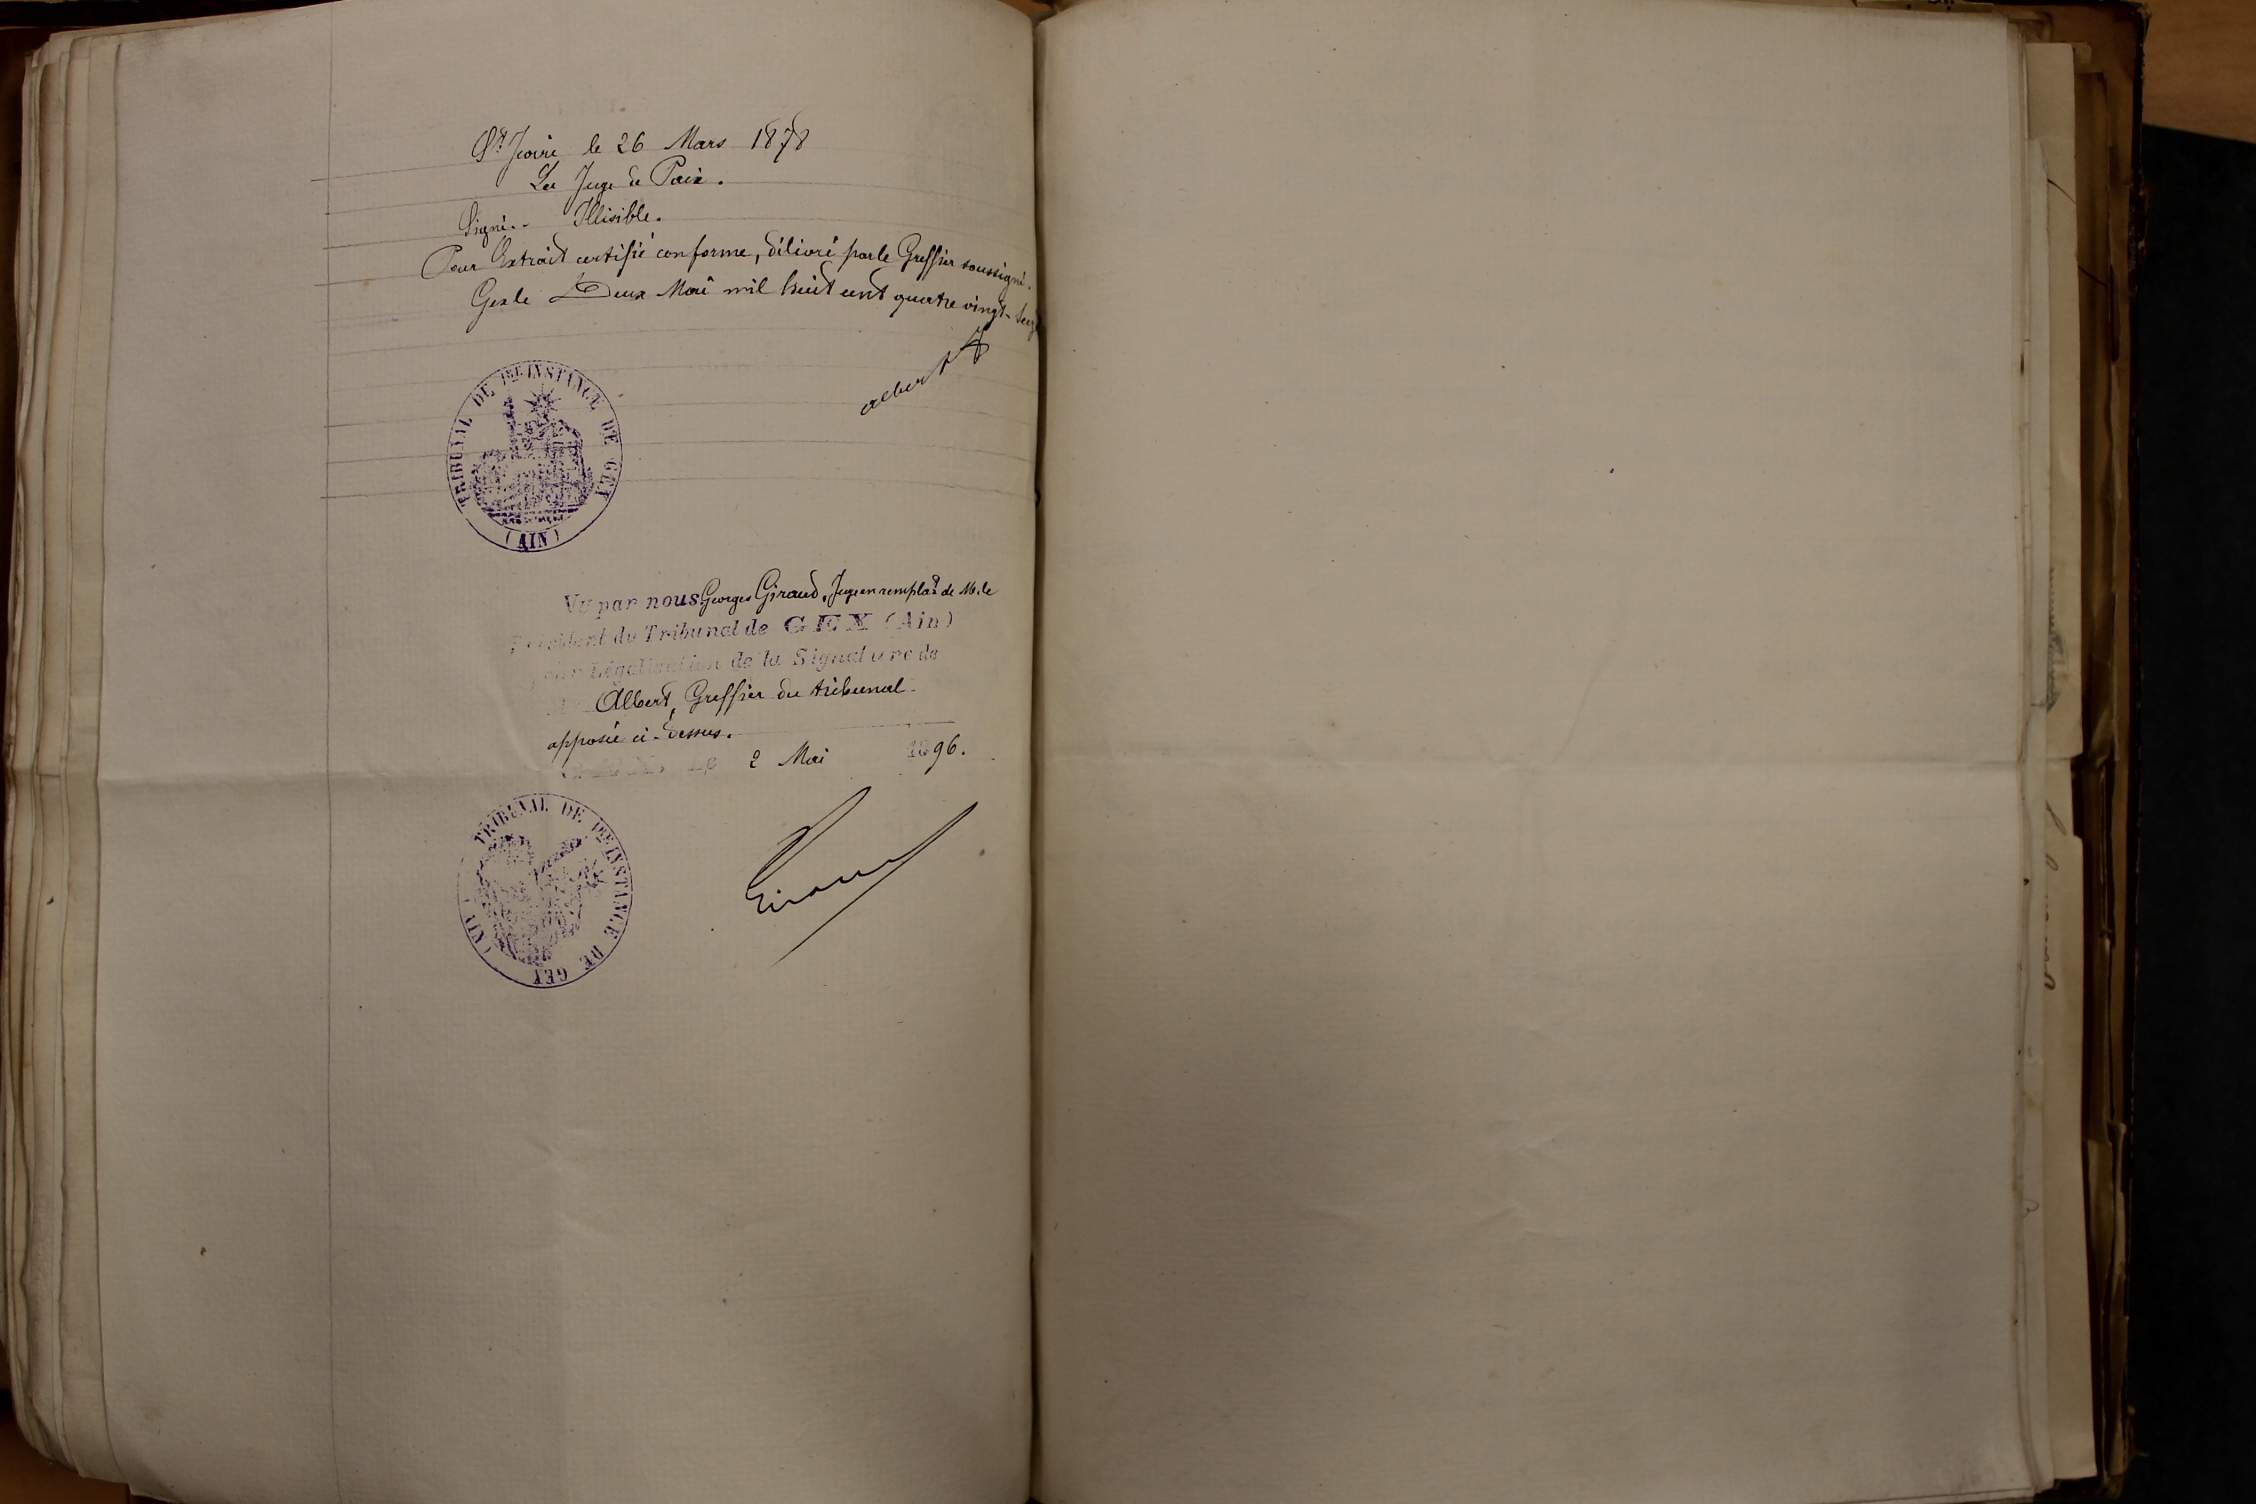 St Jeoire le 26 Mars 1878
Le Juge de Paix.
Signé.. Illisible.
Pour Extrait certifié conforme, délivré par le Greffier soussigné.
Gex le Deux Mai mil huit cent quatre vingt-seize
Albert
TRIBUNAL DE 1ère INSTANCE DE GEX
(AIN)
Vu par nous Georges Giraud, Juge en remplact de M. le
Président du Tribunal de GEX (Ain)
pour Légalisation de la Signature de
Albert, Greffier du tribunal
apposée ci-dessus.
GEX, Le 2 Mai 1896.
TRIBUNAL DE 1ère INSTANCE DE GEX
(AIN)
Giraud